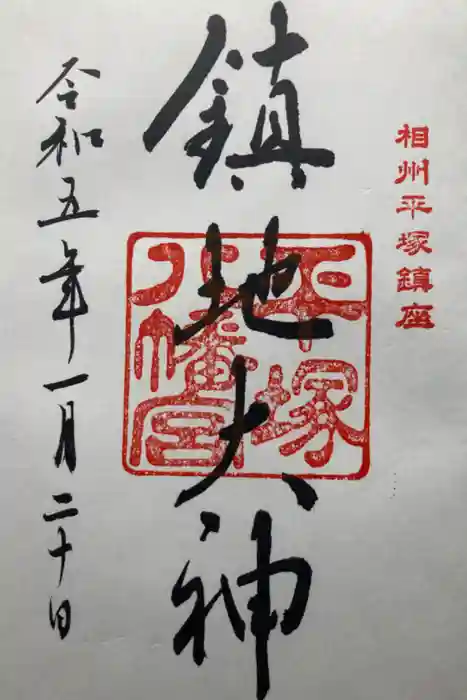 相州平塚鎮座
鎮地大神
平塚
八幡宮
令和五年一月二十日